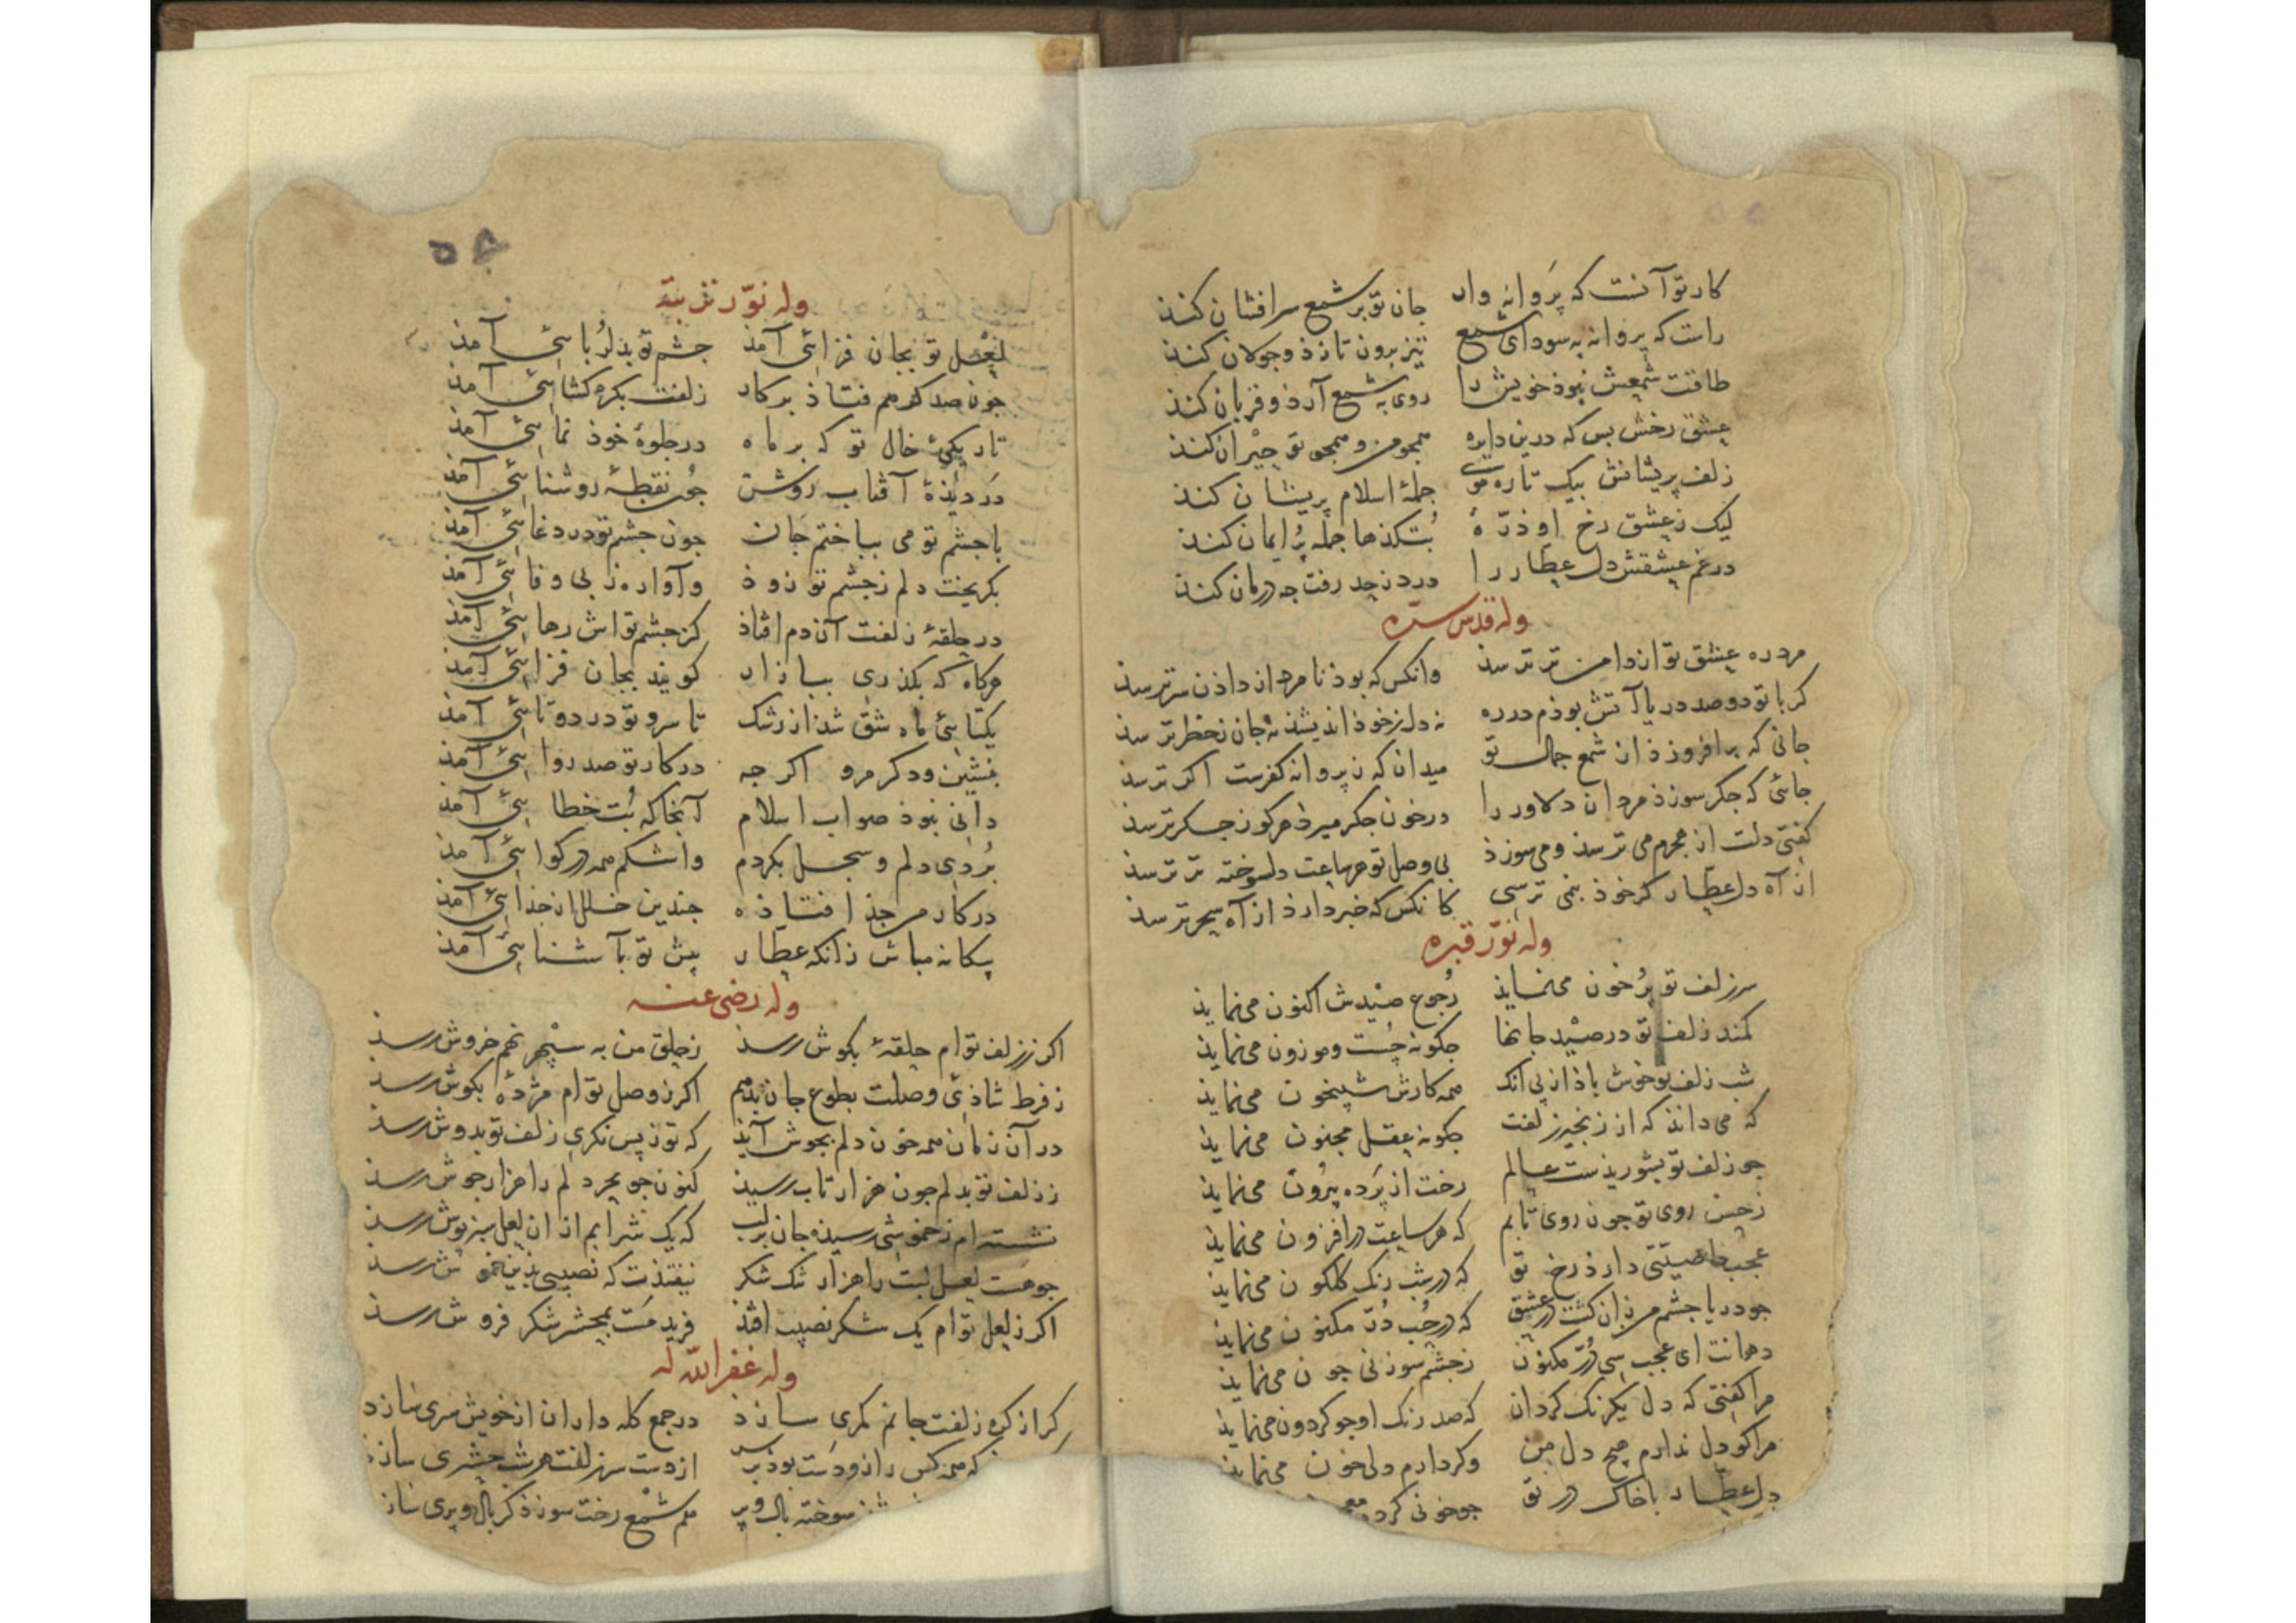 کار تو آنست که پروانه وار جان تو بر شمع سرافشان کند
راست که پروانه به سودای شمع تیز برون تازذ و جولان کند
طاقت شمعش نبوذ خویش را روی به شمع آرذ و قربان کند
عشق رخش بس که درین دایره همجو من و همجو تو حیران کند
زلف پریشانش بیک تاره موی جملهٔ اسلام پریشان کند
لیک ز عشق رخ او ذرّهٔ بُتکذها جمله پُر ایمان کند
در غم عشقش دل عطار را درد ز حد رفت جه درمان کند
وله قدس سره
مرد ره عشق تو از دامن تر ترسذ وانکس که بوذ نامرد از داذن سر ترسذ
کر با تو دو صد دریا آتش بوذم در ره نه دل ز خوذ اندیشذ نه جان ز خطر ترسذ
جانی که برافروزذ از شمع جمال تو میدان که ز پروانه کفرست اکر ترسذ
جائی که جکر سوزذ مردان دلاور را در خون جکر میرذ هرکو ز جکر ترسذ
کفتی دلت از مجرم می ترسذ و می سوزذ بی وصل تو هر ساعت دلسوخته تر ترسذ
از آه دل عطار کر خوذ بنمی ترسی کانکس که خبر دارذ از آه سحر ترسذ
وله نوّر قبره
سر زلف تو پُر خون می‌نمایذ رُجوع صیدش اکنون می‌نمایذ
کمند زلف تو در صید جانها جکونه چُست و موزون می‌نمایذ
شب زلف تو خوش باذ از پی آنک همه کارش شبیخون می‌نمایذ
که می داند که از زنجیر زلفت جکونه عقل مجنون می‌نمایذ
جو زلف تو بشوریذست عالم رخت از پَرده بیرُون می‌نمایذ
ز حسن روی تو جون روی تابم که هر ساعت در افزون می‌نمایذ
عجب خاصیتی دارذ رخ تو که در شب رنک کلکون می‌نمایذ
جو دریا جشم من زان کشت در عشق که در جُب دُرّ مکنون می‌نمایذ
دهانت ای عجب سی دُرّ مکنون ز جشم سوزنی جون می‌نمایذ
مرا کفتی که دل یکرنک کردان که صد رنک او جو کردون می‌نمایذ
مرا کو دل ندارم هیچ دل من وکر دارم دلی خون می‌نمایذ
دل عطار با خاک در تو جو خونی کرده
۵۴
وله نوّر تربته
لعل تو بجان فزائی آمذ جشم تو بذلُربائی آمذ
جون صد کرهم فتاذ بر کار زلفت بکره کشائی آمذ
تاریکئ خال تو که بر ماه در جلوهٔ خوذ نمائی آمذ
در دیذهٔ آفتاب روشن جُن نقطهٔ روشنائی آمذ
با جشم تو می بباختم جان جون جشم تو در دغائی آمذ
بکریخت دلم ز جشم تو زوذ وآواره ز بی وفائی آمذ
در حلقهٔ زلفت آن دم افتاذ کز جشم تو اش رهائی آمذ
هرکاه که بکذری ببازار کویند بجان فزائی آمذ
یکتائی ماه شق شذ از رشک تا سرو تو در دوتائی آمذ
بنشین و دکر مرو اکر جه در کار تو صد روائی آمذ
دانی نبوذ صواب اسلام آنجا که بُت خطائی آمذ
بُردی دلم و بحل بکردم واشکم همه در کوائی آمذ
در کار من جذا فتاذه جندین خلل از جذائی آمذ
بیکانه مباش زانکه عطار پیش تو بآشنائی آمذ
وله رضی عنه
اکر ز زلف توام حلقهٔ بکوش رسذ ز حلق من به سپهر نهم خروش رسذ
ز فرط شاذئ وصلت بطوع جان بذهم اکر ز وصل توام مژدهٔ بکوش رسذ
در آن زمان همه خون دلم بجوش آیذ که تو ز پس نکری زلف تو بدوش رسذ
ز زلف تو بدلم جون هزار تاب رسیذ کنون جو بحر دلم را هزار جوش رسذ
نشسته ام ز خموشی رسیذه جان بر لب که یک شرابم از ان لعل سبز پوش رسذ
جو هست لعل لبت را هزار تنک شکر نیفتذت که نصیبی بذین خموش رسذ
اکر ز لعل توام یک شکر نصیب افتذ فرید مست بمحشر شکر فروش رسذ
وله غفر الله له
کر از کره زلفت جانم کمری سازذ در جمع کله داران از خویش سری سازذ
که همه کس را زو دست بوذ بر سر از دست سر زلفت هر شب حشری سازذ
سوخته بال و پر هم شمع رخت سوزذ کر بال و پری سازذ